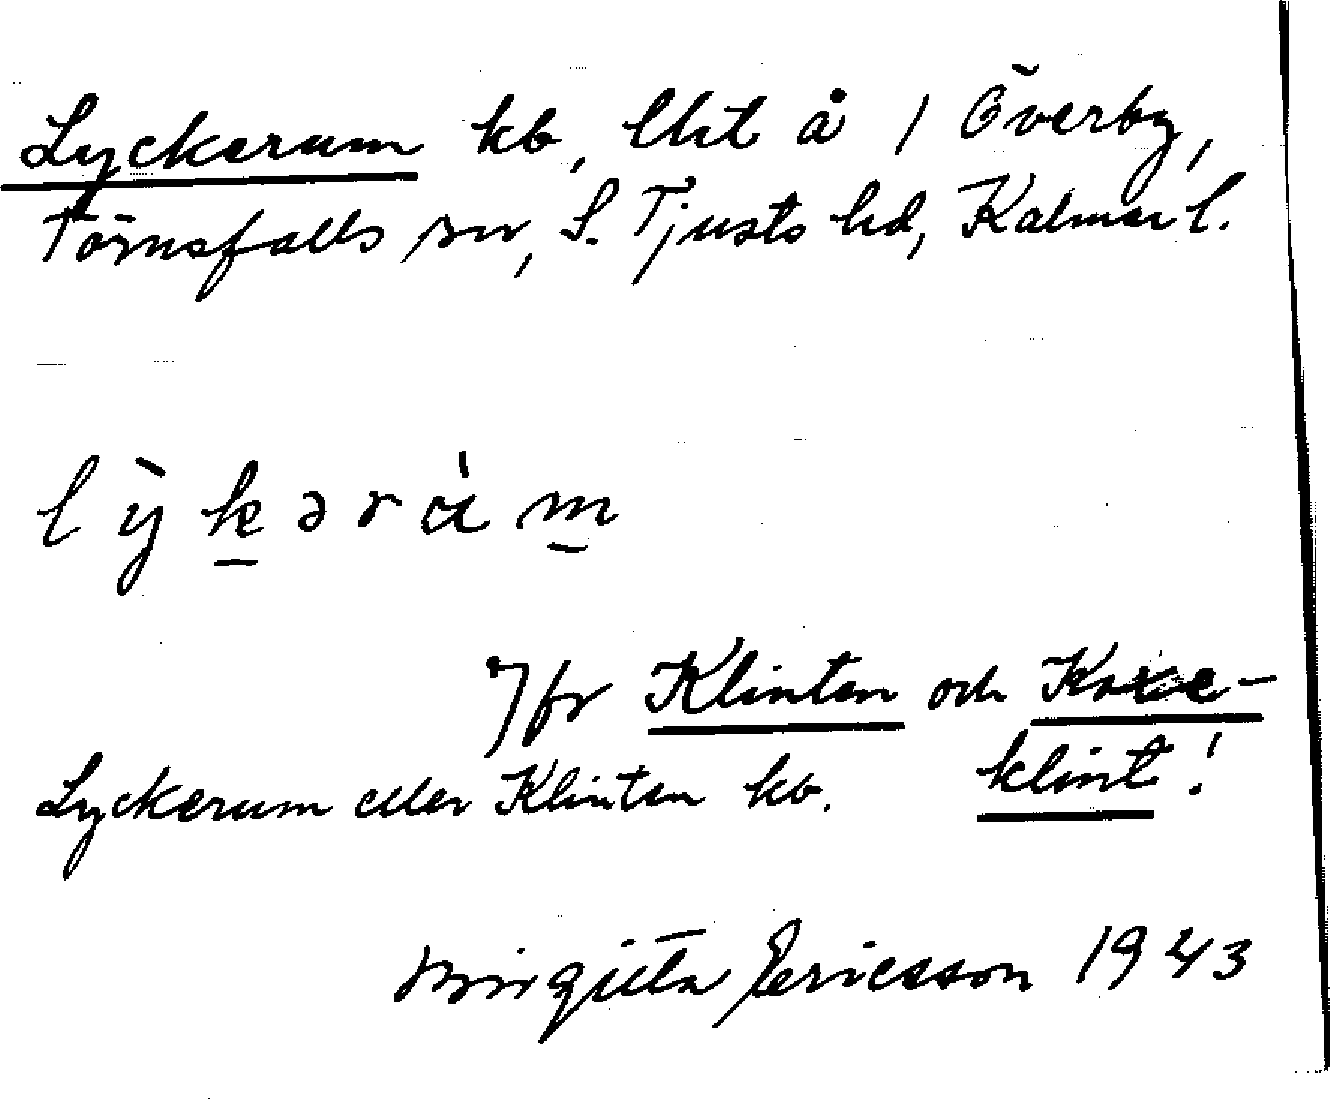 Lyckerum kb, lht å 1 Överby,
Törnsfalls sn, S. Tjusts hd, Kalmar l.
lỳkəràm
Jfr Klinten och Kaxe-
Lyckerum eller Klinten kb. klint!
Birgitta Ericsson 1943